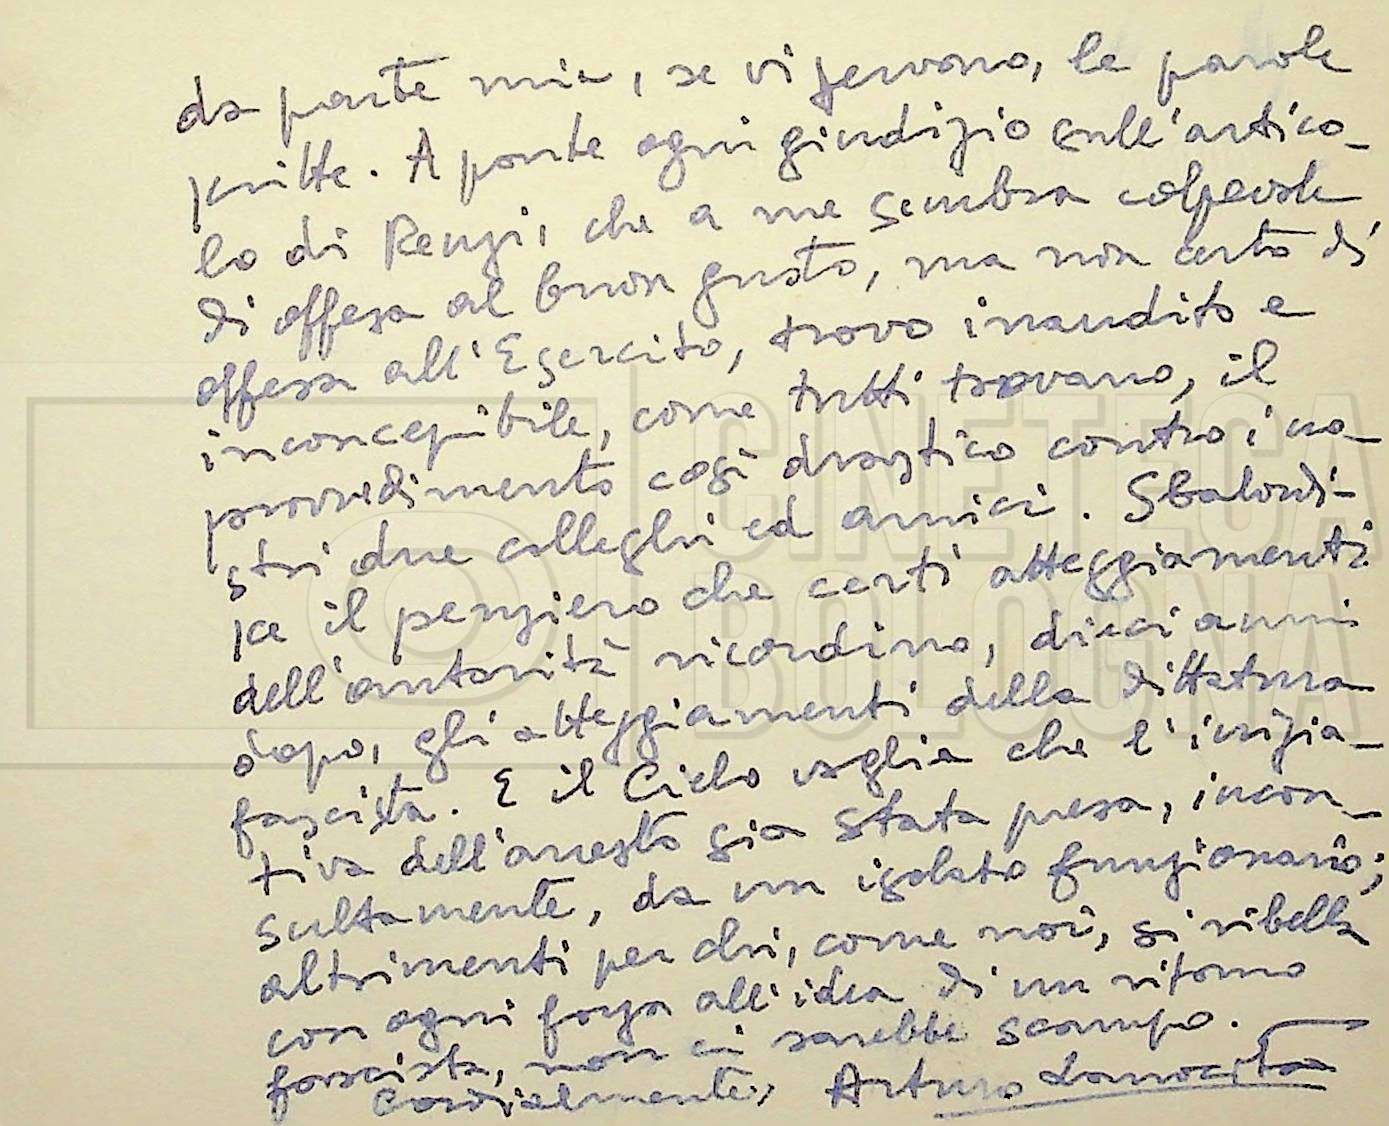 da parte mia, se vi servono, le parole
scritte. A parte ogni giudizio sull'artico-
lo di Renzi, che a me sembra colpevole
di offesa al buon gusto, ma non certo di
offesa all'Esercito, trovo inaudito e
inconcepibile, come tutti trovano, il
provvedimento così drastico contro i no-
stri due colleghi ed amici. Sbalordi-
sce il pensiero che certi atteggiamenti
dell'autorità ricordino, dieci anni
dopo, gli atteggiamenti della dittatura
fascista. E il Cielo voglia che l'inizia-
tiva dell'arresto sia stata presa, incon-
sultamente, da un isolato funzionario;
altrimenti per chi, come noi, si ribella
con ogni forza all'idea di un ritorno
fascista, non ci sarebbe scampo.
Cordialmente, Arturo Lanocita
CINETECA
BOLOGNA